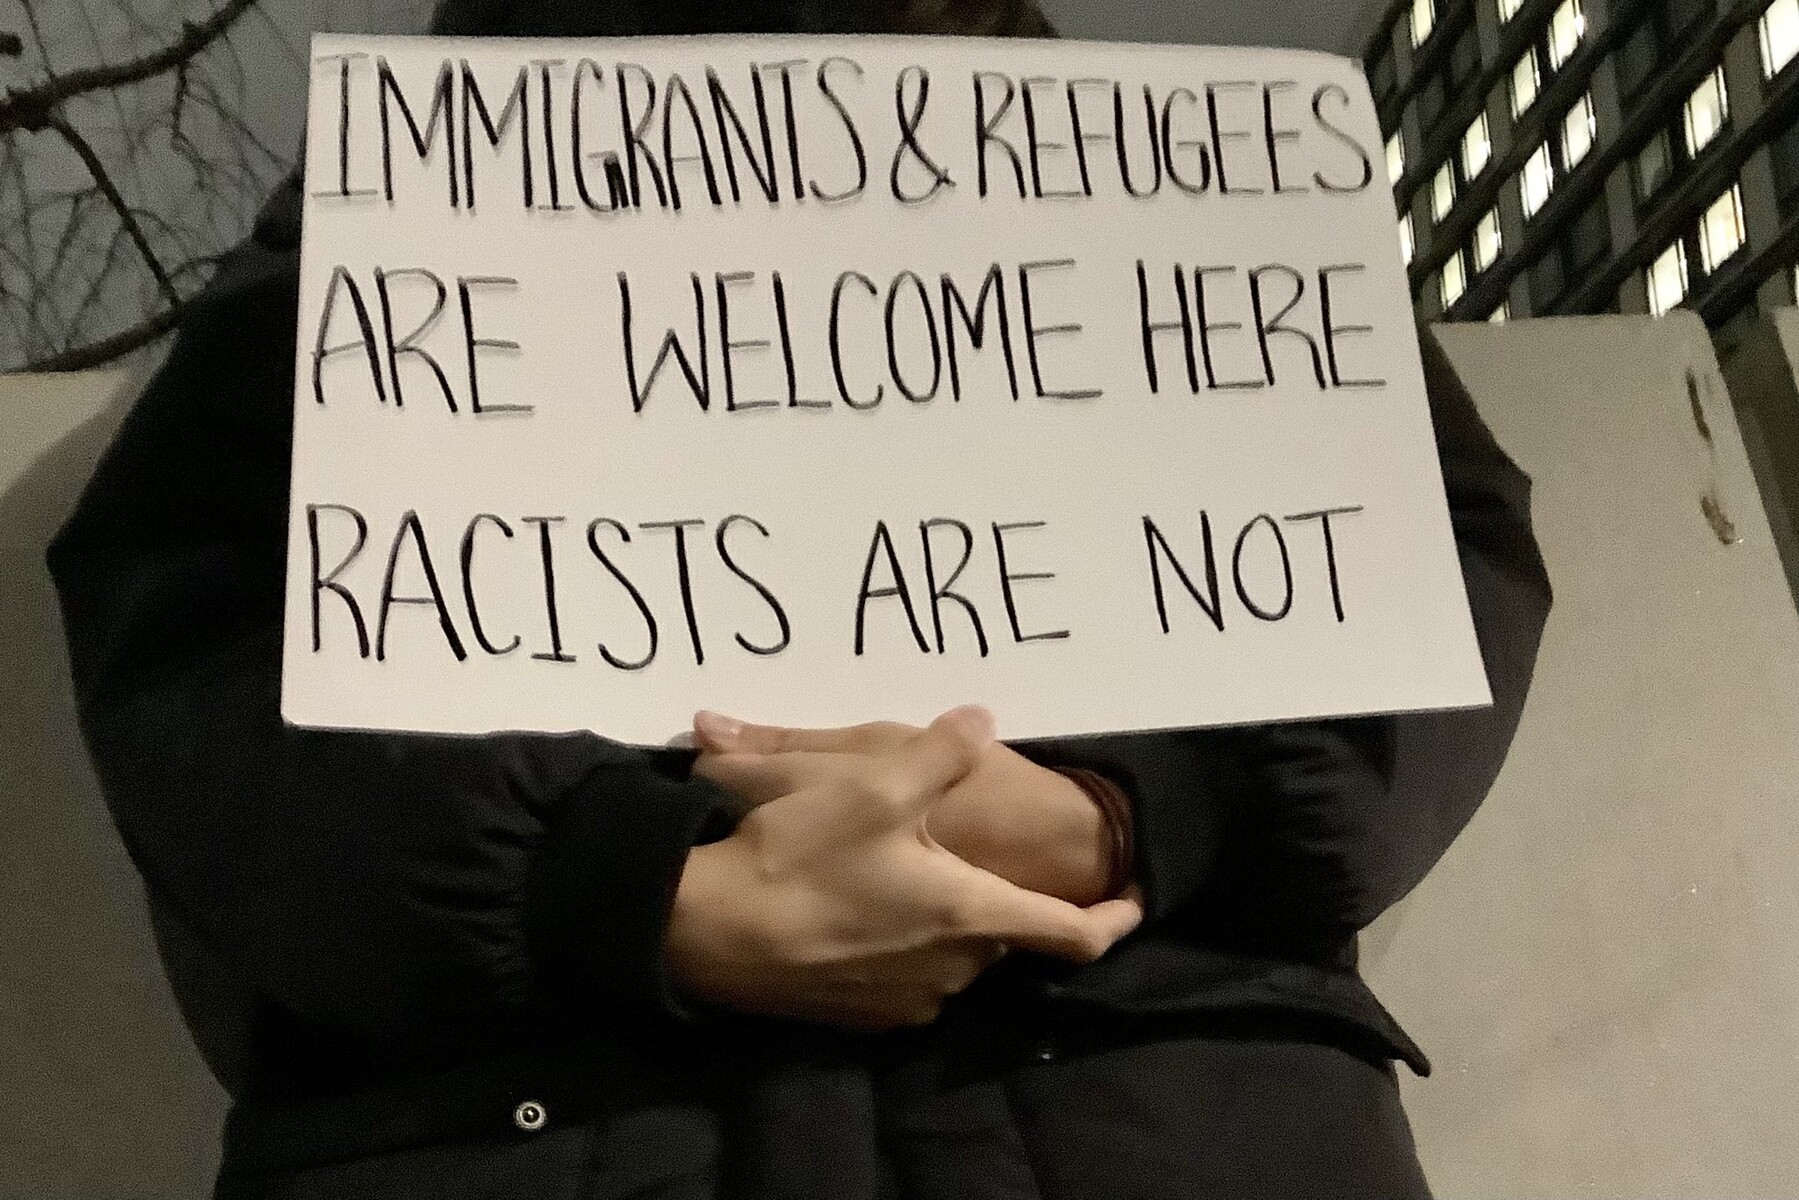 IMMIGRANTS & REFUGEES
ARE WELCOME HERE
RACISTS ARE NOT